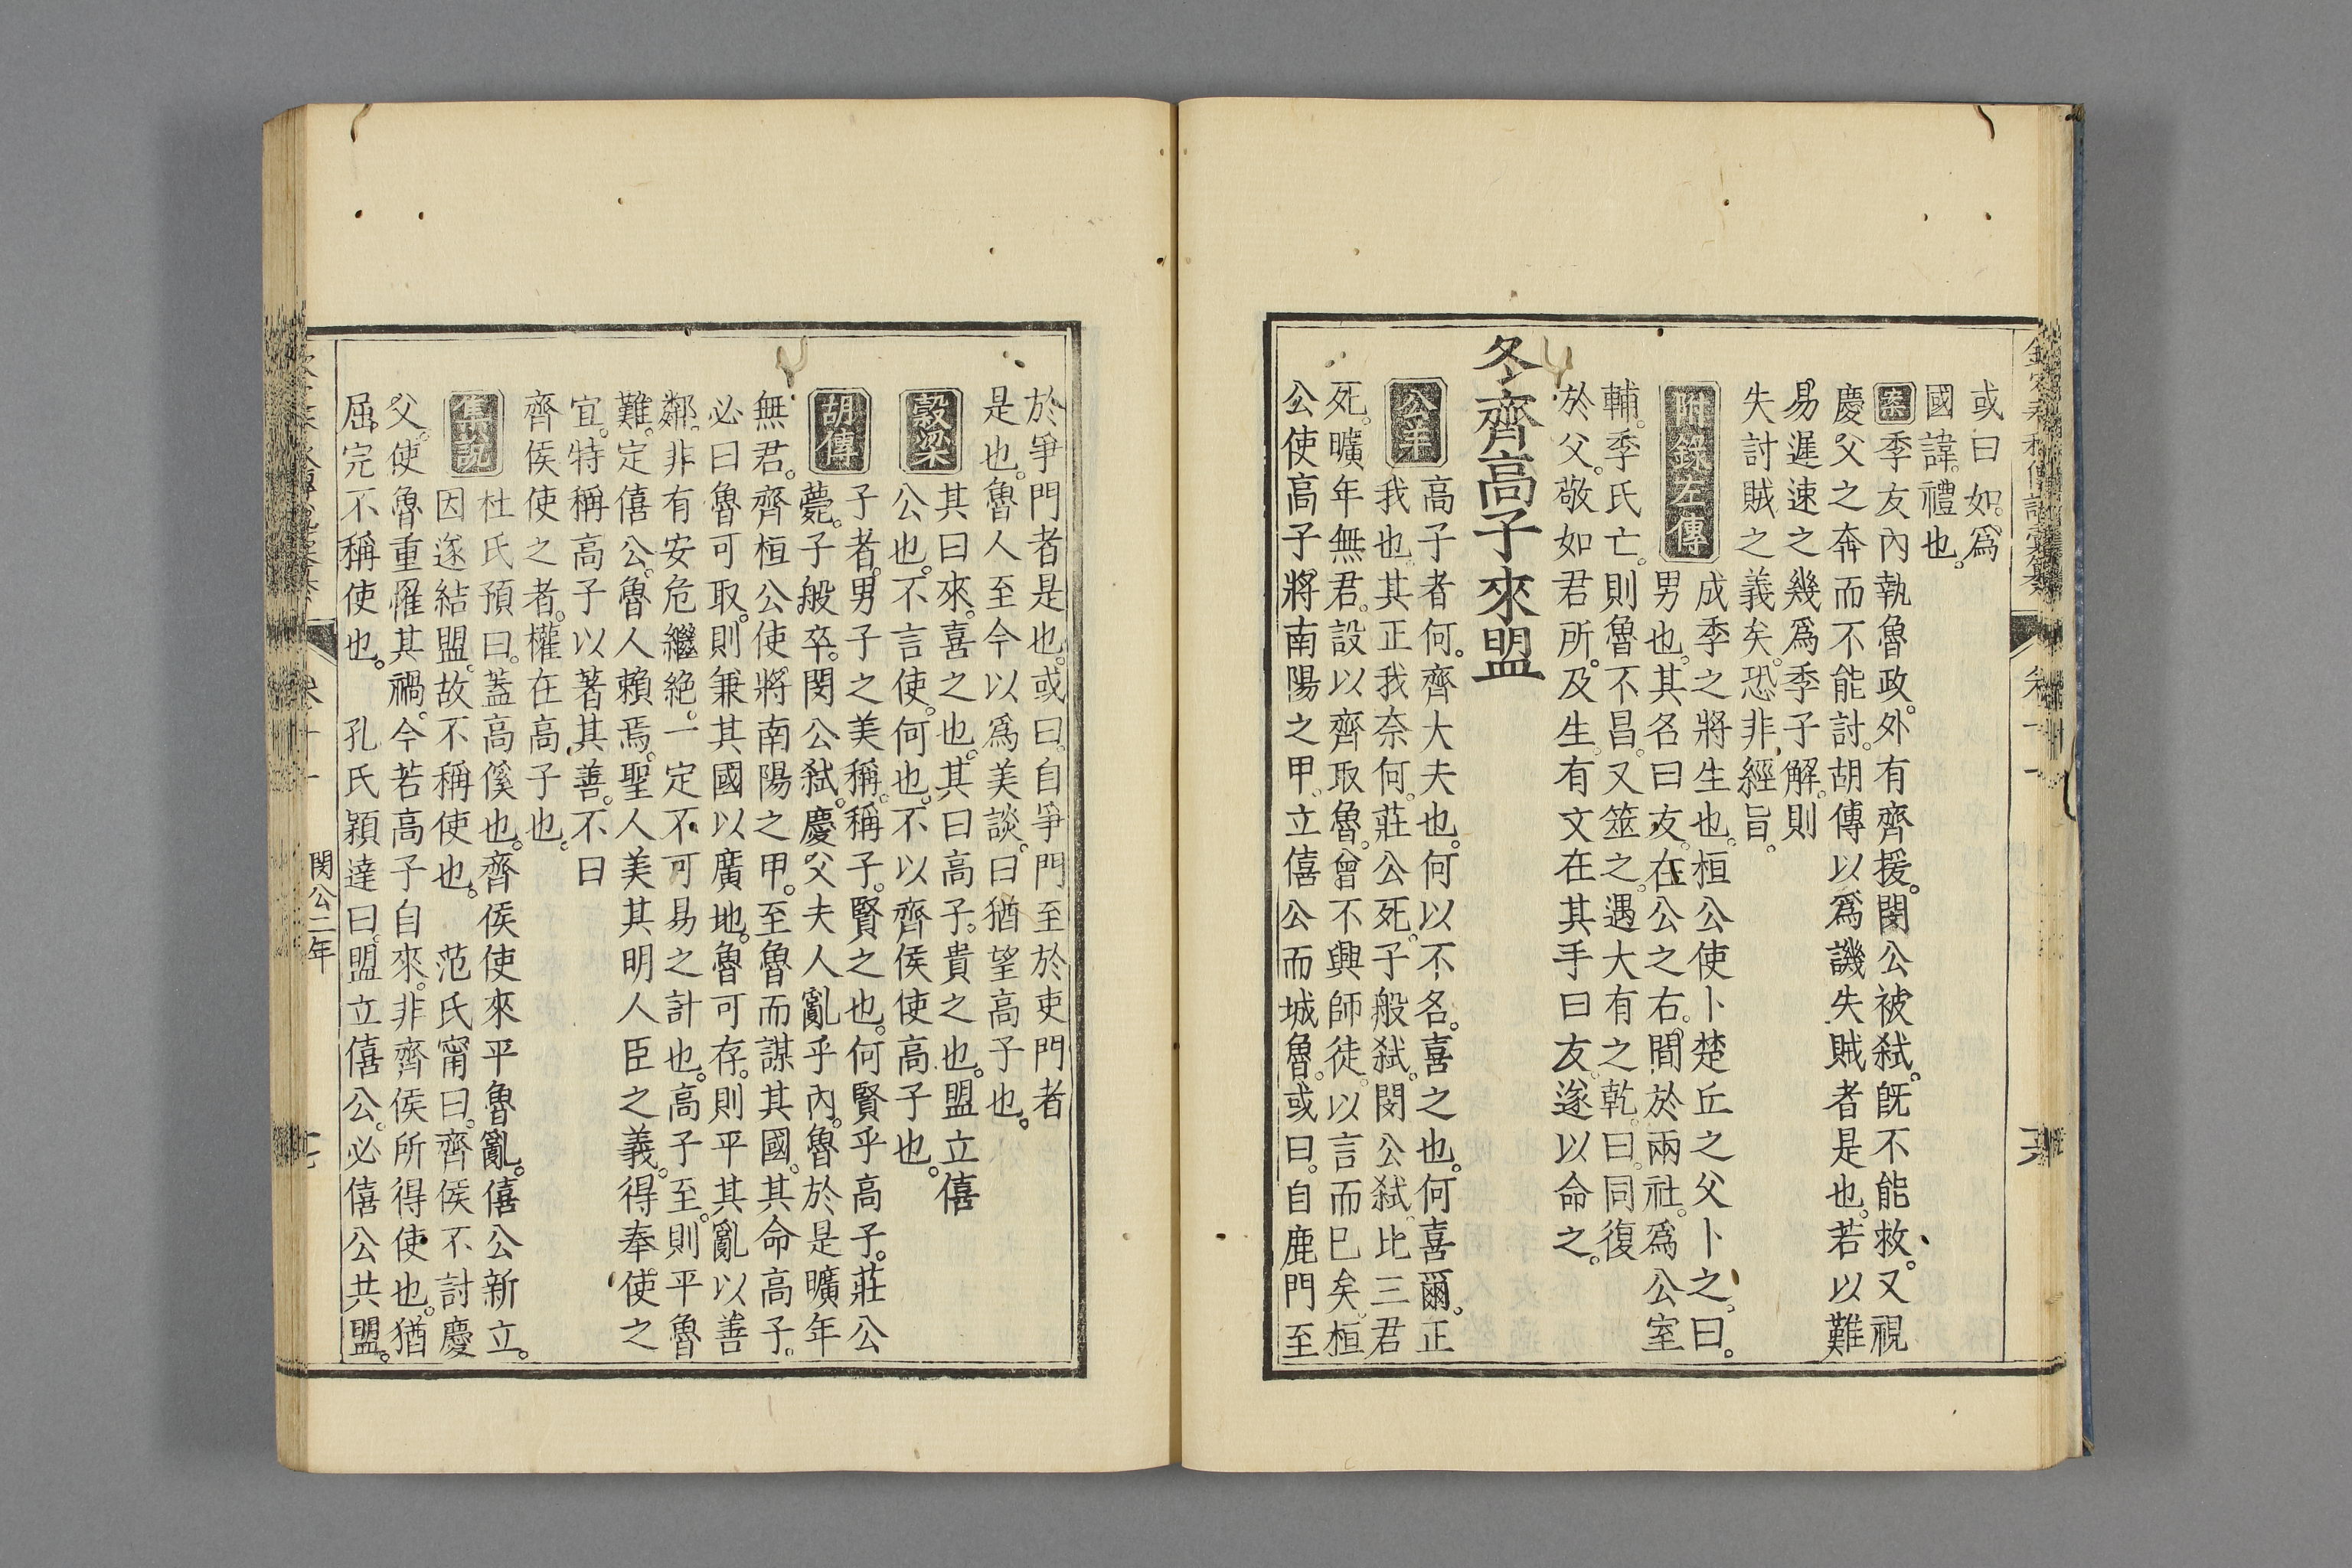 或曰如。爲
國諱。禮也。
案 季友內執魯政。外有齊援。閔公被弑。旣不能救。又視
慶父之奔而不能討。胡傳以爲譏失賊者是也。若以難
易遲速之幾爲季子解。則
失討賊之義矣。恐非經旨。
附錄左傳 成季之將生也。桓公使卜楚丘之父卜之。曰。
男也。其名曰友。在公之右。間於兩社。爲公室
輔。季氏亡。則魯不昌。又筮之。遇大有之乾。曰。同復
於父。敬如君所。及生。有文在其手曰友。遂以命之。
冬齊高子來盟
公羊 高子者何。齊大夫也。何以不名。喜之也。何喜爾。正
我也。其正我奈何。莊公死。子般弑。閔公弑。比三君
死。曠年無君。設以齊取魯。曾不興師徒。以言而已矣。桓
公使高子將南陽之甲。立僖公而城魯。或曰。自鹿門至
於爭門者是也。或曰。自爭門至於吏門者
是也。魯人至今以爲美談。曰猶望高子也。
穀梁 其曰來。喜之也。其曰高子。貴之也。盟立僖
公也。不言使。何也。不以齊侯使高子也。
胡傳 子者。男子之美稱。稱子。賢之也。何賢乎高子。莊公
薨。子般卒。閔公弑。慶父夫人亂乎內。魯於是曠年
無君。齊桓公使將南陽之甲。至魯而謀其國。其命高子。
必曰魯可取。則兼其國以廣地。魯可存。則平其亂以善
鄰。非有安危繼絶。一定不可易之計也。高子至。則平魯
難。定僖公。魯人賴焉。聖人美其明人臣之義。得奉使之
宜。特稱高子以著其善。不曰
齊侯使之者。權在高子也。
集說 杜氏預曰。蓋高傒也。齊侯使來平魯亂。僖公新立。
因遂結盟。故不稱使也。 范氏甯曰。齊侯不討慶
父。使魯重罹其禍。今若高子自來。非齊侯所得使也。猶
屈完不稱使也。 孔氏穎達曰。盟立僖公。必僖公共盟。
閔公二年